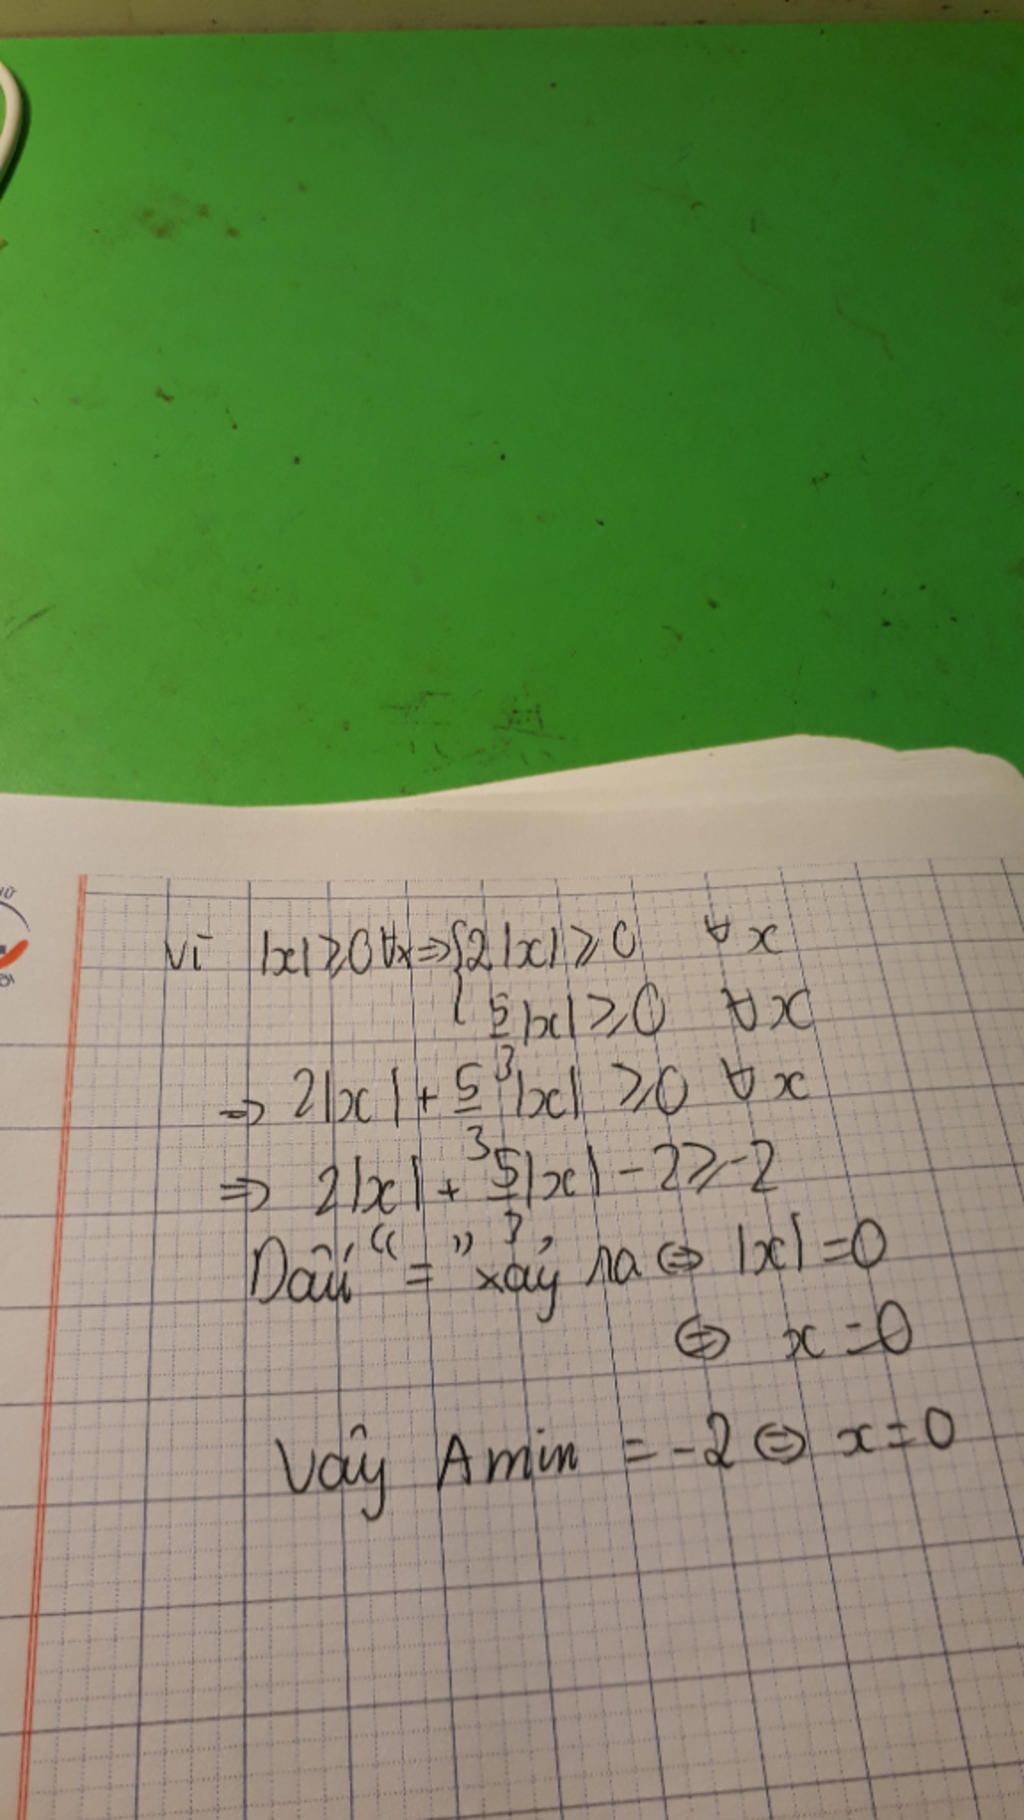 Vì |x| ≥ 0 ∀x ⇒ { 2|x| ≥ 0 ∀x
5/3|x| ≥ 0 ∀x
⇒ 2|x| + 5/3|x| ≥ 0 ∀x
⇒ 2|x| + 5/3|x| - 2 ≥ -2
Dấu "=" xảy ra ⇔ |x| = 0
⇔ x = 0
Vậy A min = -2 ⇔ x = 0